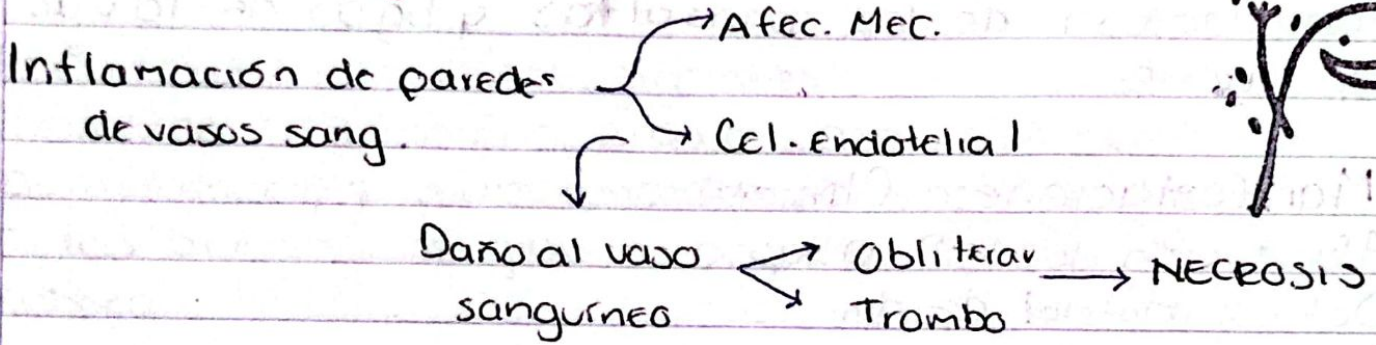 Afec. Mec.
Inflamación de paredes
de vasos sang.
Cel. Endotelial
Daño al vaso
sanguíneo
Obliterar
NECROSIS
Trombo